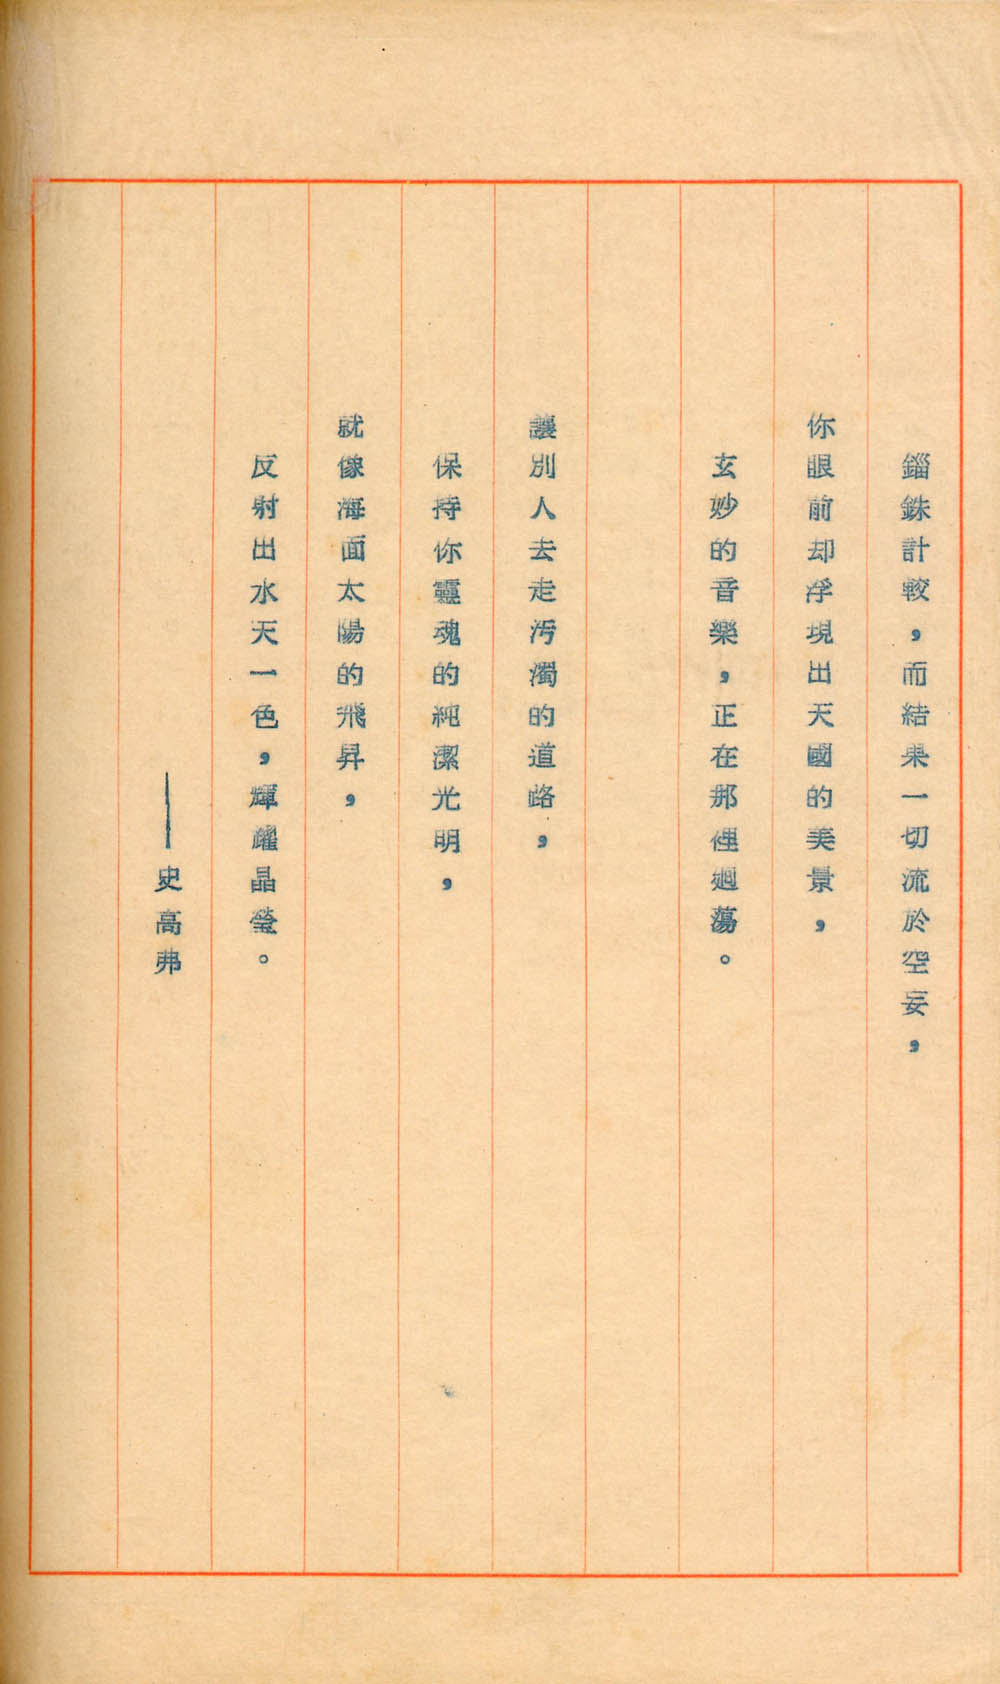 錙銖計較，而結果一切流於空妄，
你眼前却浮現出天國的美景，
玄妙的音樂，正在那裡廻蕩。
讓別人去走汚濁的道路，
保持你靈魂的純潔光明，
就像海面太陽的飛昇，
反射出水天一色，輝耀晶瑩。
——史高弗